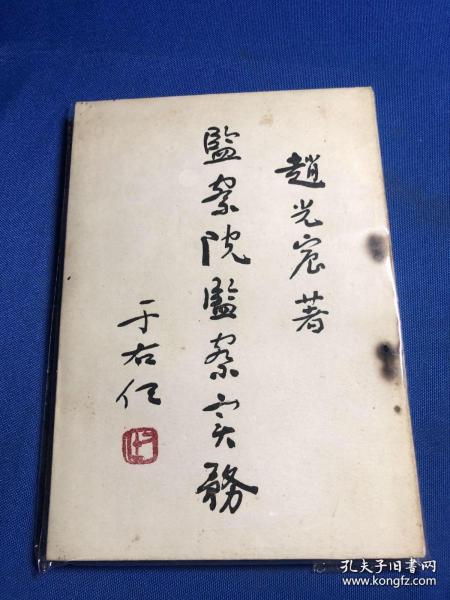 趙光宸著
監察院監察实務
于右任
孔夫子旧书网
www.kongfz.com